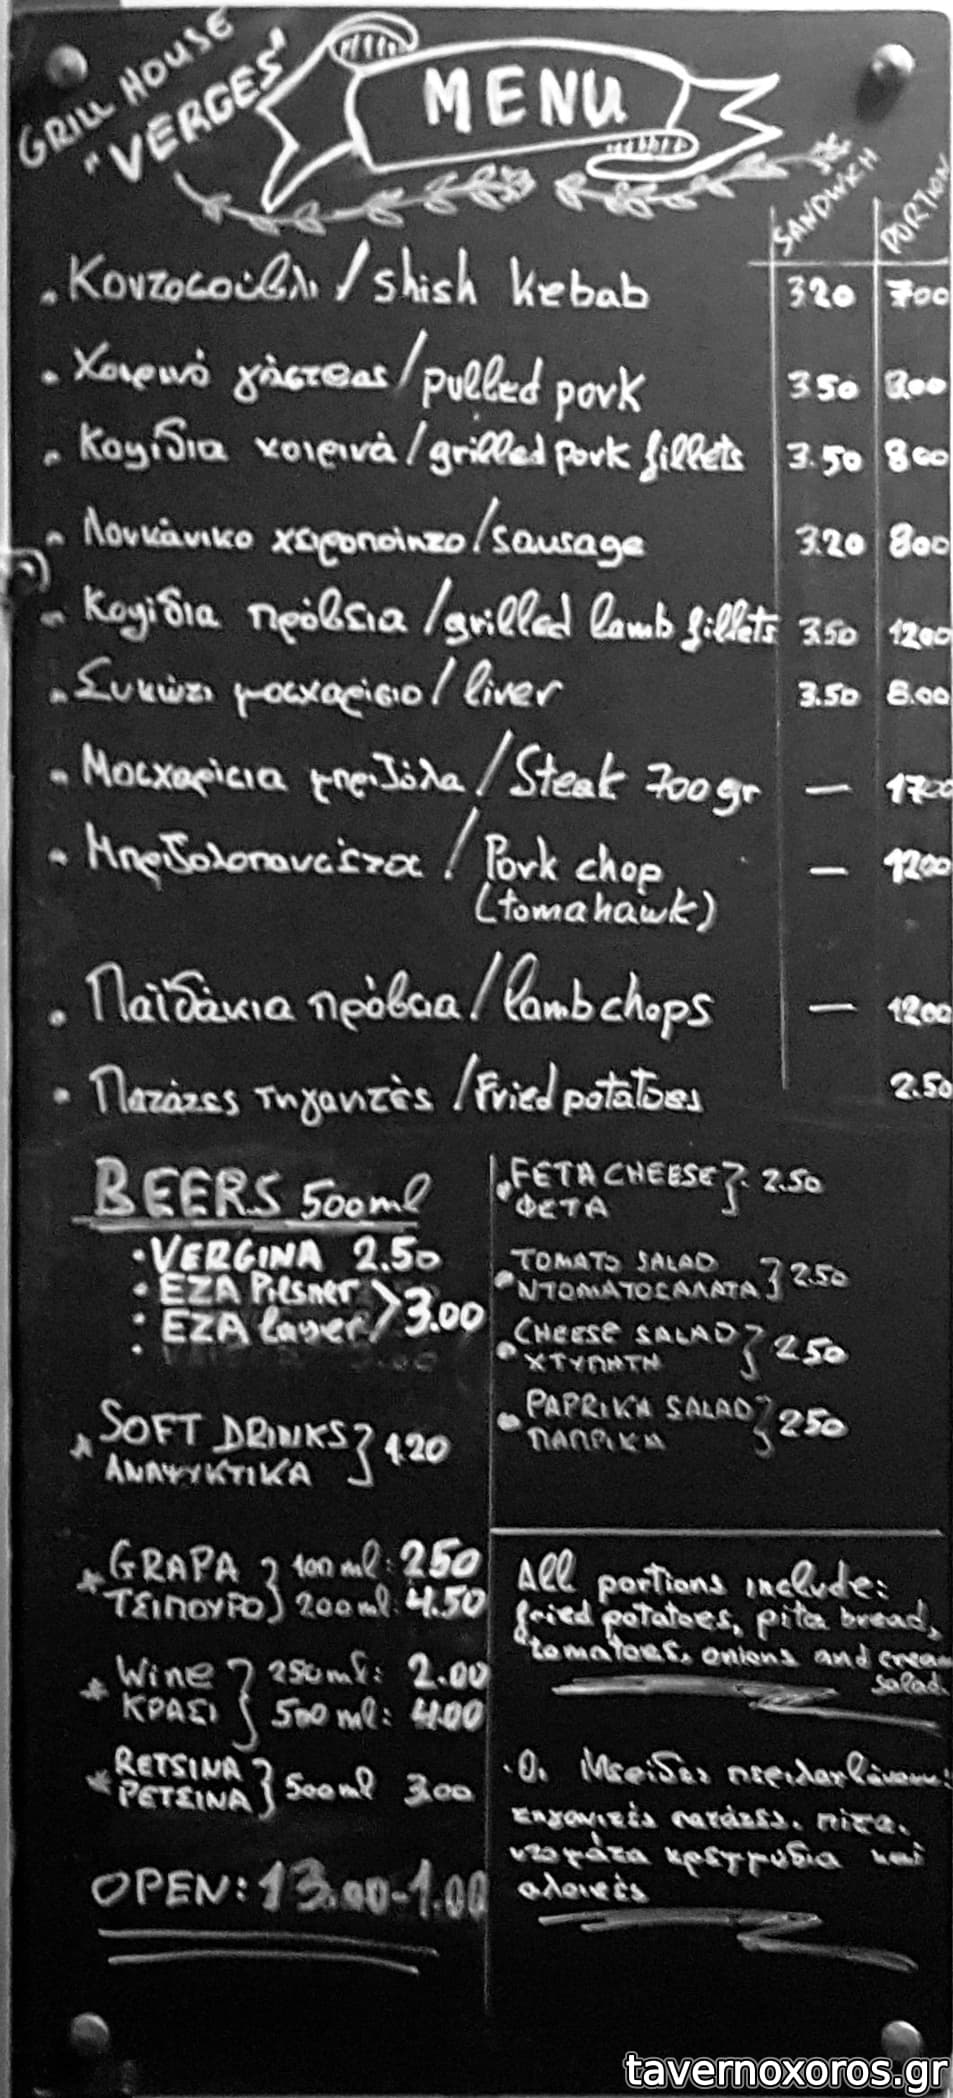 GRILL HOUSE
"VERGES"
MENU
SANDWICH PORTION
. Κοντοσούβλι / shish kebab 3.20 7.00
. Χοιρινό γάστρας / pulled pork 3.50 8.00
. Καγίδια χοιρινά / grilled pork fillets 3.50 8.00
. Λουκάνικο χειροποίητο / sausage 3.20 8.00
. Καγίδια πρόβεια / grilled lamb fillets 3.50 12.00
. Συκώτι μοσχαρίσιο / liver 3.50 8.00
. Μοσχαρίσια μπριζόλα / Steak 700 gr — 17.00
. Μπριζολοπανσέτα / Pork chop — 12.00
(tomahawk)
. Παϊδάκια πρόβεια / lamb chops — 12.00
. Πατάτες τηγανητές / Fried potatoes 2.50
BEERS 500ml
. VERGINA 2.50
. EZA Pilsner
. EZA lager > 3.00
* SOFT DRINKS } 1.20
ΑΝΑΨΥΚΤΙΚΑ
* GRAPA } 100 ml: 2.50
ΤΣΙΠΟΥΡΟ } 200 ml: 4.50
* Wine } 250 ml: 2.00
ΚΡΑΣΙ } 500 ml: 4.00
* RETSINA } 500ml 3.00
ΡΕΤΣΙΝΑ
OPEN: 13.00-1.00
. FETA CHEESE }. 2.50
ΦΕΤΑ
. TOMATO SALAD } 2.50
ΝΤΟΜΑΤΟΣΑΛΑΤΑ
. CHEESE SALAD } 2.50
ΧΤΥΠΗΤΗ
. PAPRIKA SALAD } 2.50
ΠΑΠΡΙΚΑ
All portions include:
fried potatoes, pita bread,
tomatoes, onions and cream
salad.
. Οι Μερίδες περιλαμβάνουν:
τηγανιτές πατάτες, πίτα,
ντομάτα κρεμμύδια και
αλοιφές
tavernoxoros.gr